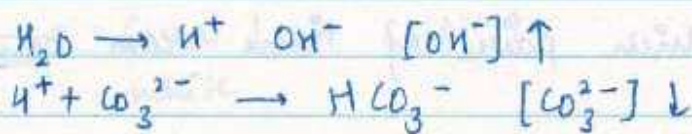 H₂O → H⁺ OH⁻ [OH⁻] ↑
H⁺ + CO₃²⁻ → HCO₃⁻ [CO₃²⁻] ↓